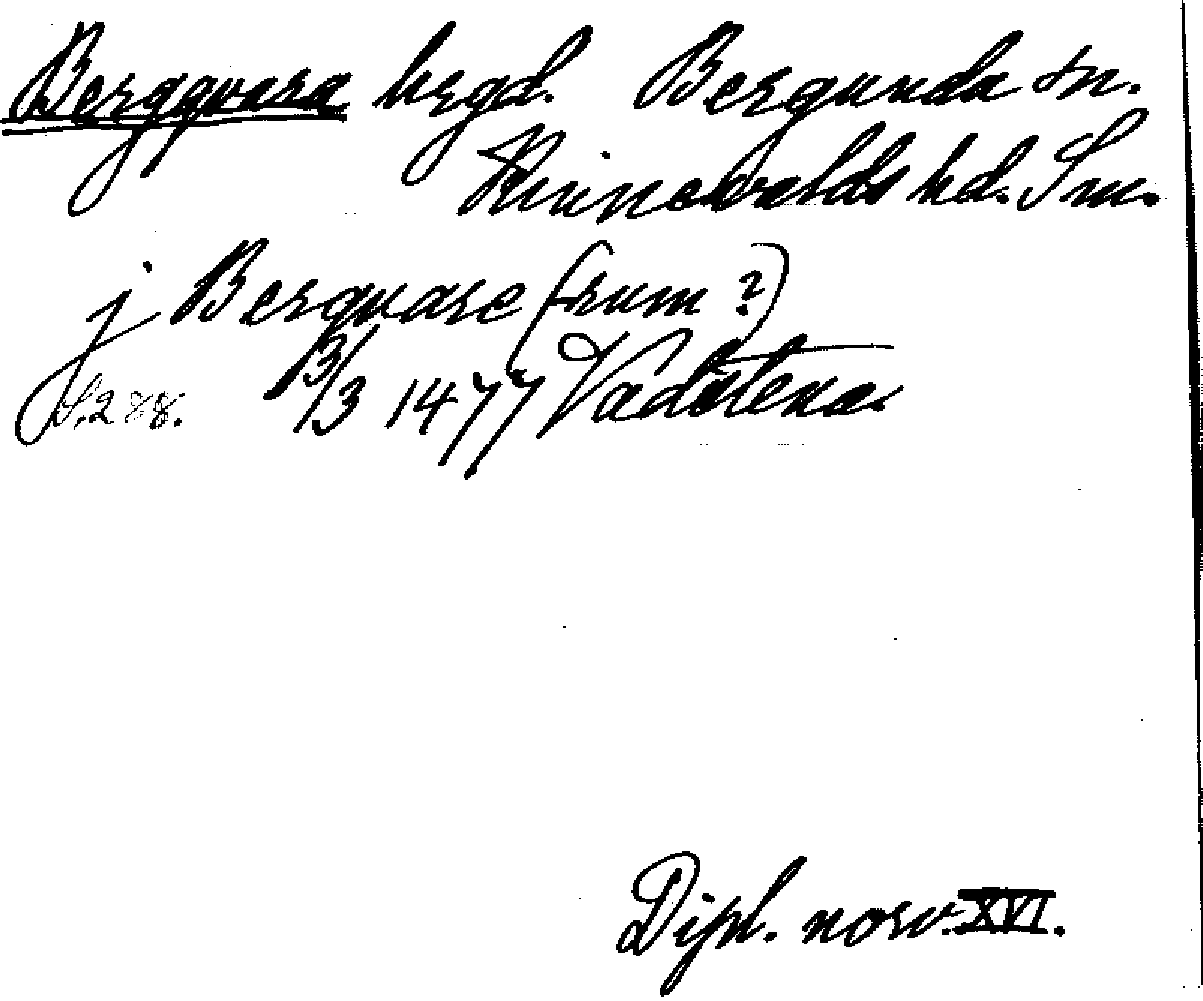 Bergqvara hrgd. Bergunda sn.
Kinnevalds hd. Sm.
j Berquare (rum ?)
S. 288. 13/3 1477 Vadstena.
Dipl. norv. XVI.